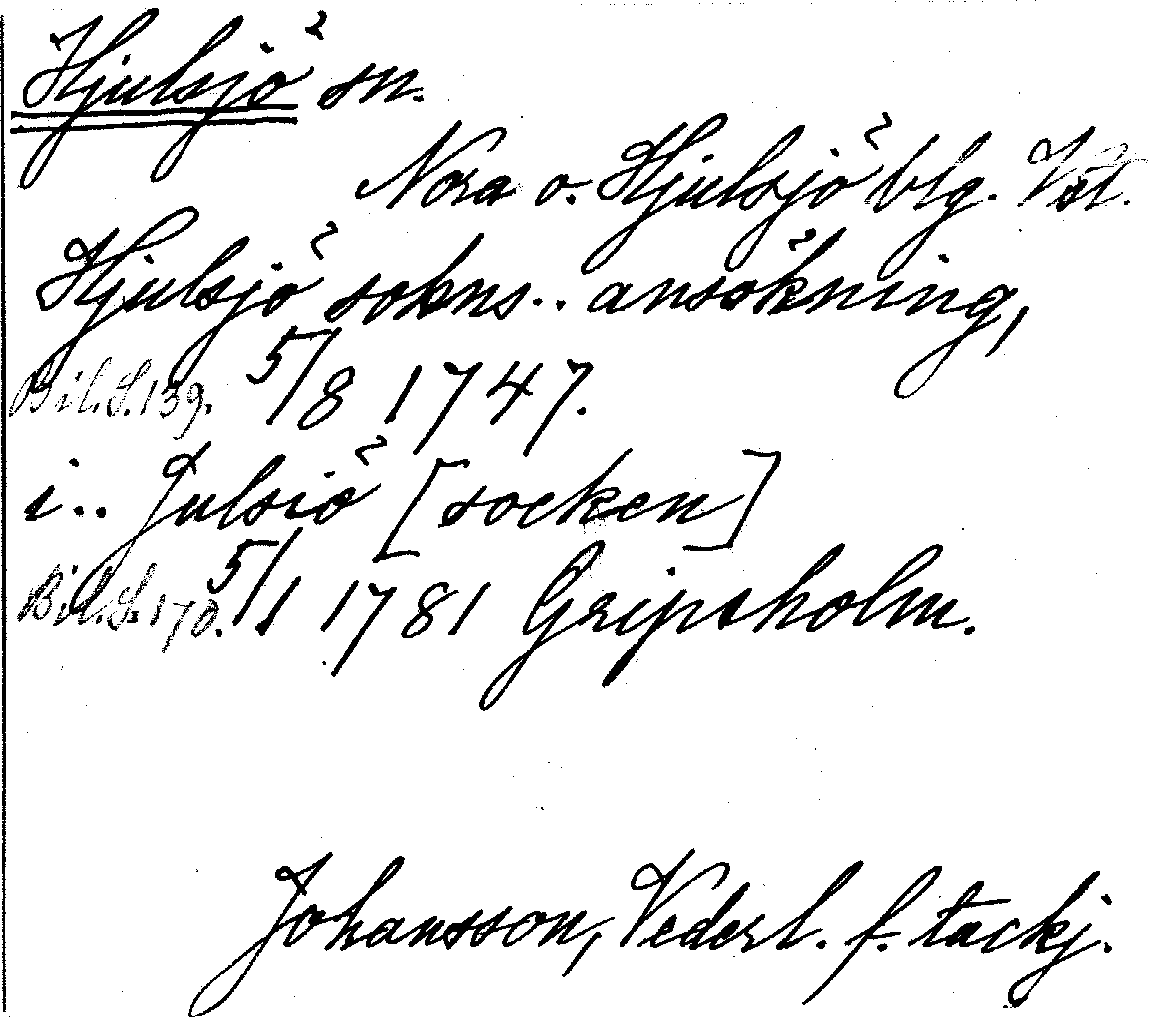 Hjulsjö sn.
Nora o. Hjulsjö blg. Vstl.
Hjulsjö sokns.. ansökning,
Bil. S. 139. 5/8 1747.
i.. Julsiö [socken]
Bil. S. 170. 5/1 1781 Gripsholm.
Johansson, Vederl. f. tackj.